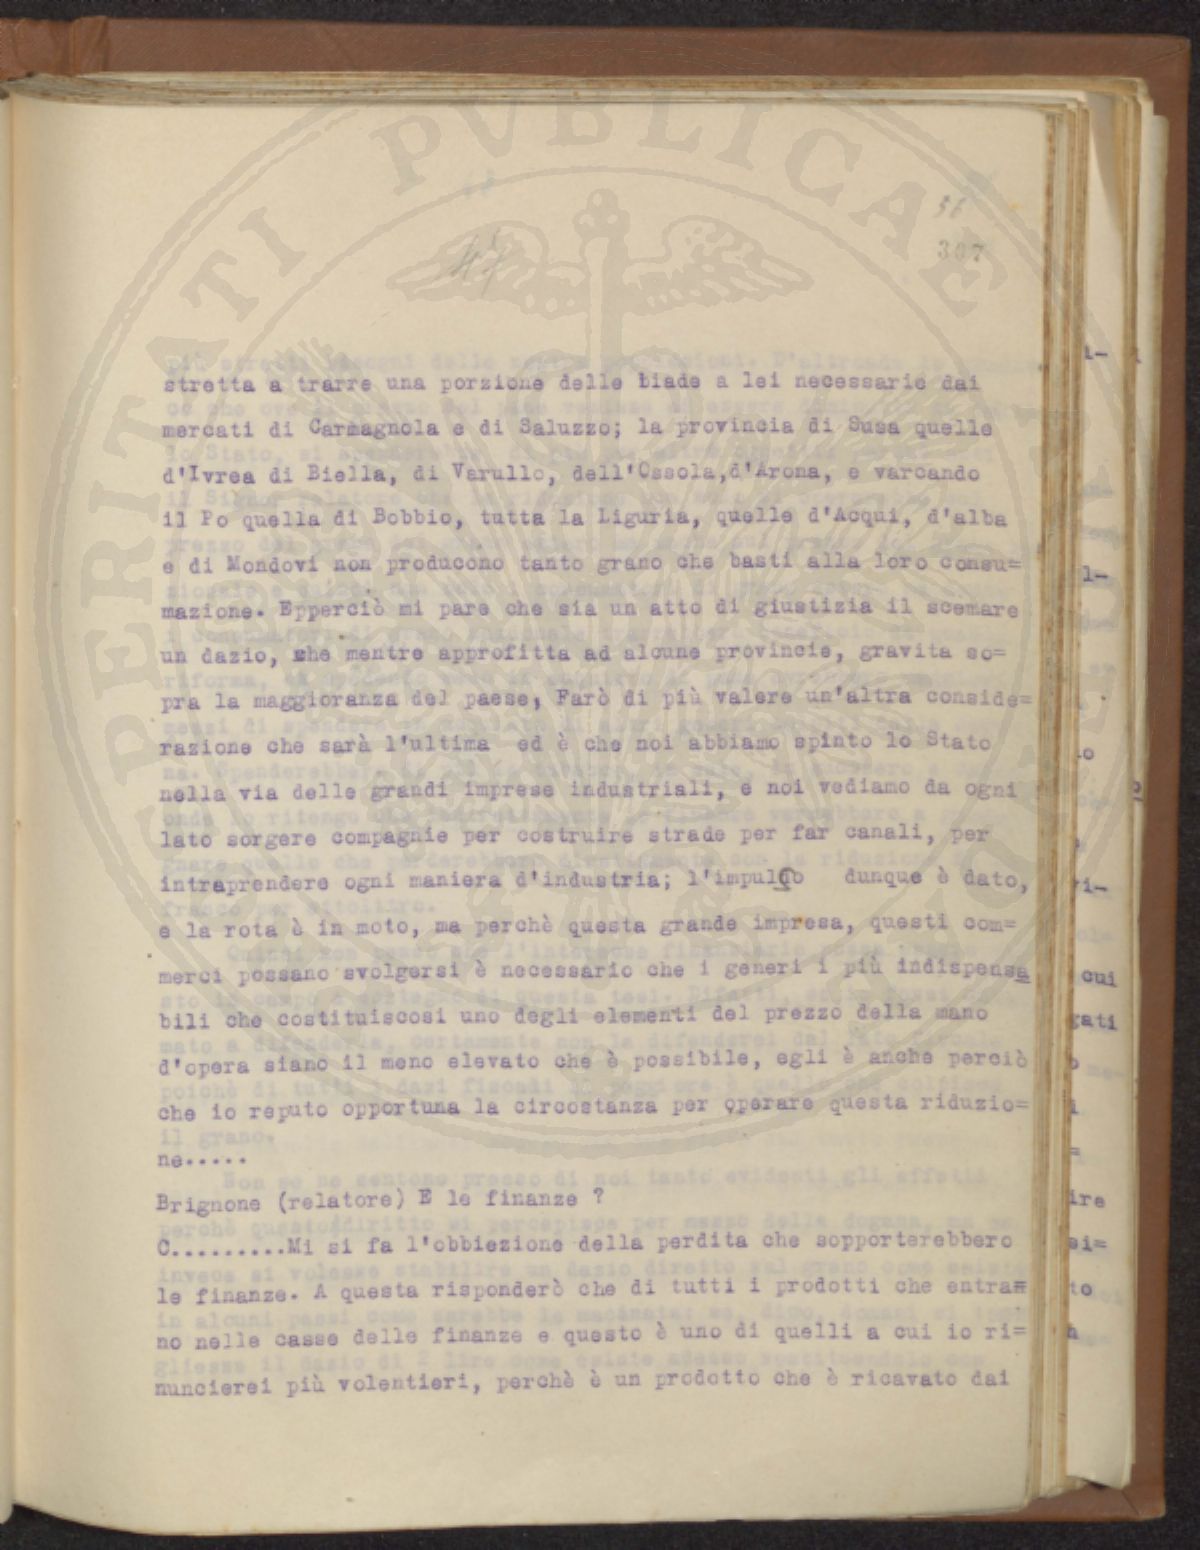 PERITATI PVBLICAE
36
47
307
stretta a trarre una porzione delle biade a lei necessarie dai
mercati di Carmagnola e di Saluzzo; la provincia di Susa quelle
d'Ivrea di Biella, di Varullo, dell'Ossola,d'Arona, e varcando
il Po quella di Bobbio, tutta la Liguria, quelle d'Acqui, d'alba
e di Mondovi non producono tanto grano che basti alla loro consu=
mazione. Epperciò mi pare che sia un atto di giustizia il scemare
un dazio, che mentre approfitta ad alcune provincie, gravita so=
pra la maggioranza del paese, Farò di più valere un'altra conside=
razione che sarà l'ultima ed è che noi abbiamo spinto lo Stato
nella via delle grandi imprese industriali, e noi vediamo da ogni
lato sorgere compagnie per costruire strade per far canali, per
intraprendere ogni maniera d'industria; l'impulso dunque è dato,
e la rota è in moto, ma perchè questa grande impresa, questi com=
merci possano svolgersi è necessario che i generi i più indispensa
bili che costituiscosi uno degli elementi del prezzo della mano
d'opera siano il meno elevato che è possibile, egli è anche perciò
che io reputo opportuna la circostanza per operare questa riduzio=
ne.....
Brignone (relatore) E le finanze ?
C.........Mi si fa l'obbiezione della perdita che sopporterebbero
le finanze. A questa risponderò che di tutti i prodotti che entra=
no nelle casse delle finanze e questo è uno di quelli a cui io ri=
nuncierei più volentieri, perchè è un prodotto che è ricavato dai